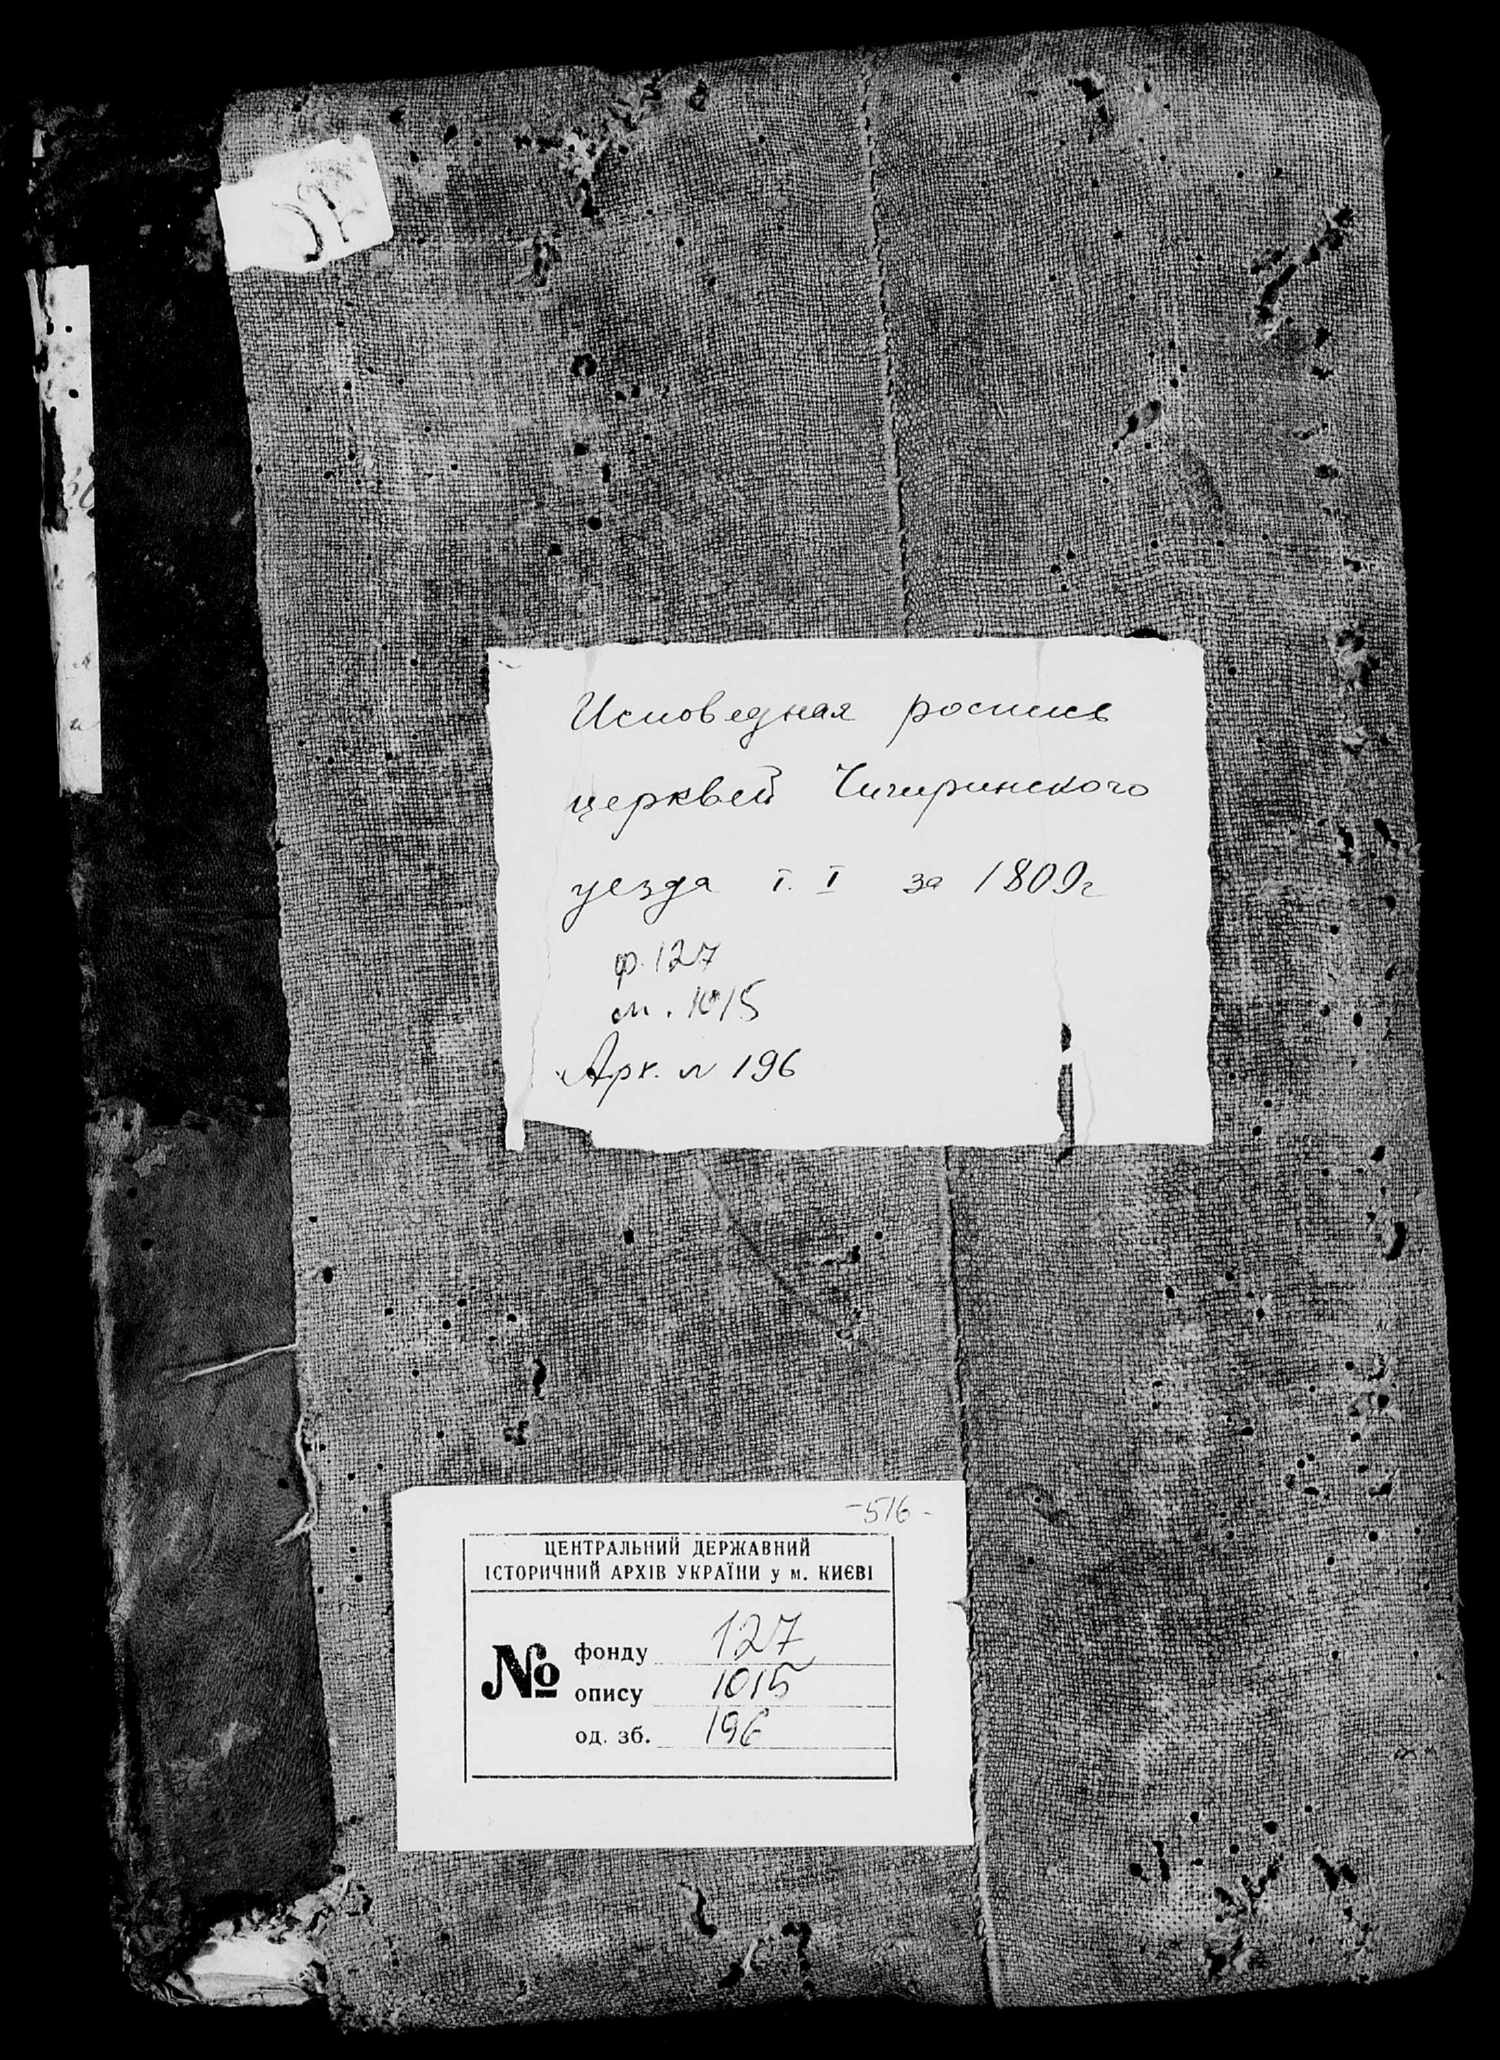 Исповедная роспись
церквей Чигиринского
уезда т. I за 1809г
ф. 127
оп. 1015
Арх. № 196
-516-
ЦЕНТРАЛЬНИЙ ДЕРЖАВНИЙ
ІСТОРИЧНИЙ АРХІВ УКРАЇНИ у м. КИЄВІ
№ фонду 127
опису 1015
од. зб. 196